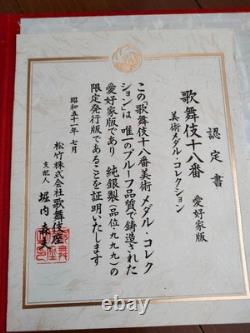 認定書
歌舞伎十八番
美術メダル・コレクション
愛好家版
この「歌舞伎十八番美術メダル・コレク
ション」は唯一のプルーフ品質で鋳造された
愛好家版であり 純銀製(品位・九九九)の
限定発行版であることを証明いたします
昭和五十一年 七月
松竹株式会社歌舞伎座
支配人
堀内